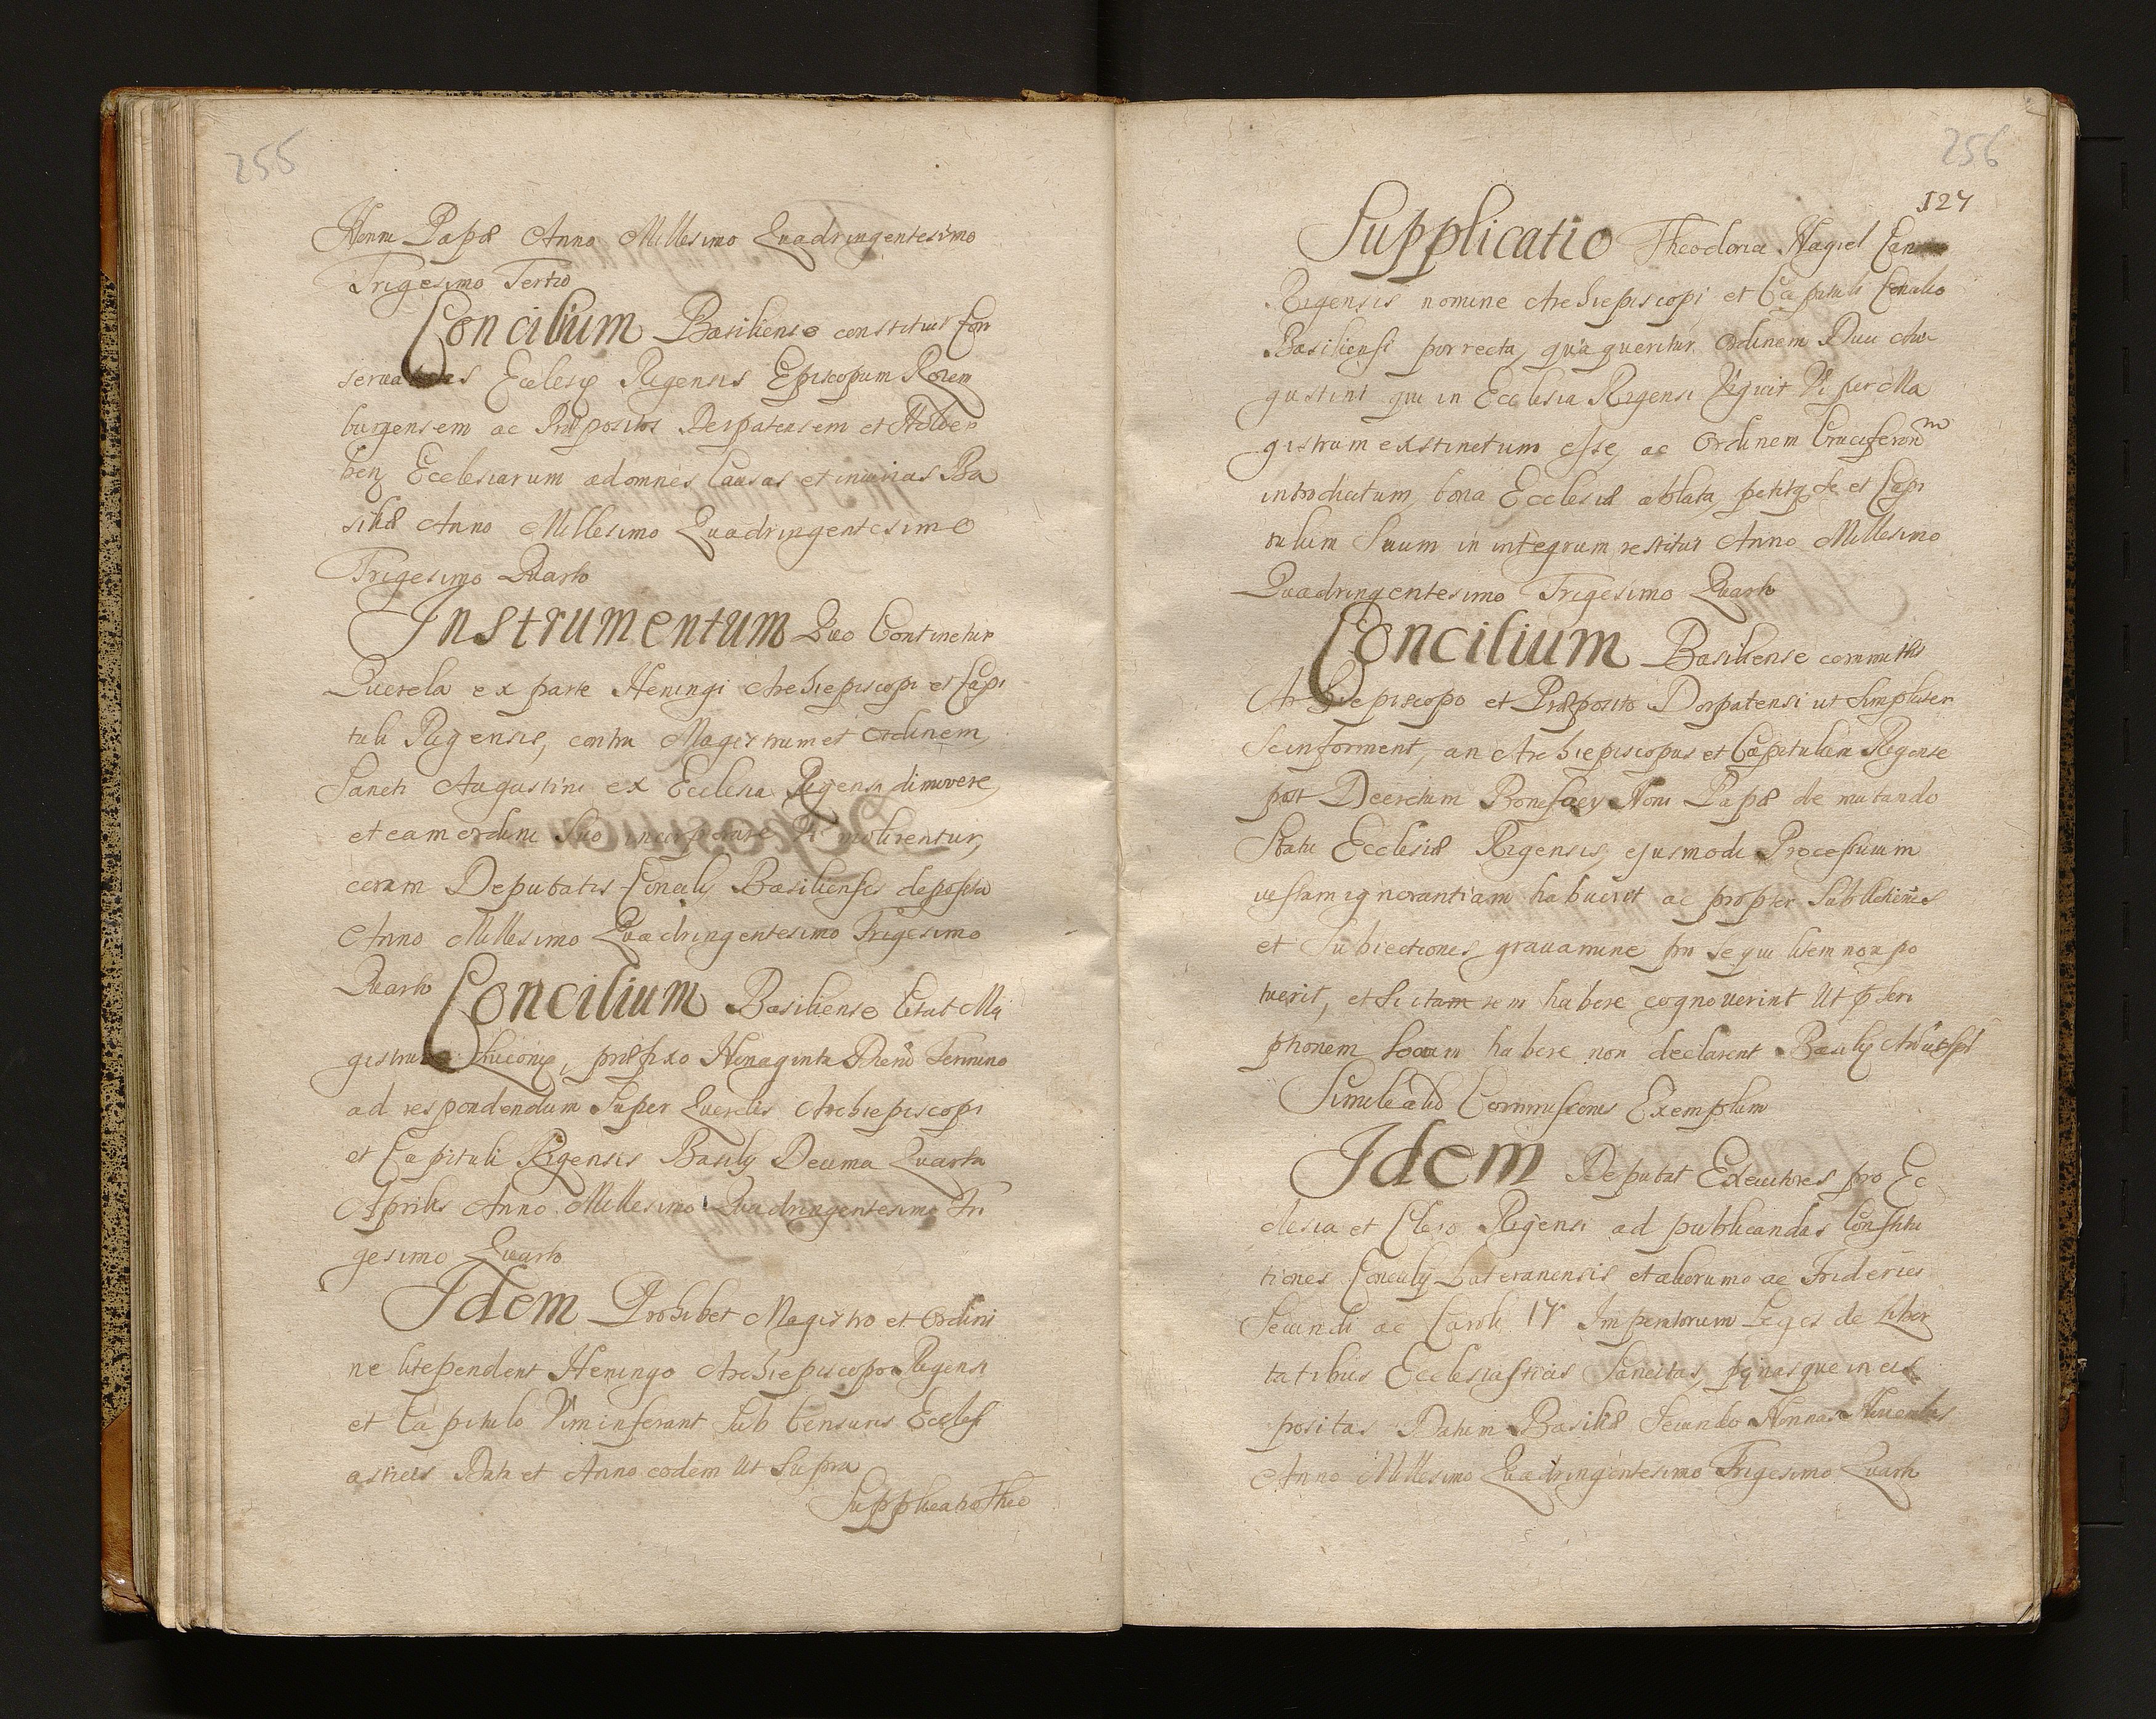 255
Nonni Papæ Anno Millesimo Quadringentesimo
Trigesimo Tertio
Concilium Basiliense constituit Con
seruatores Eclesię Rigensis Episcopum Rozem
burgensem ac Præpositos Derpatensem et Holber
hen Ecclesiarum ad omnes Causas et iniurias Ba
siliæ Anno Millesimo Quadringentesimo
Trigesimo Quarto
Instrumentum Quo Continetur
Querela ex parte Heningi Archiepiscopi et Capi
tuli Rigensis, contra Magistrum et Ordinem,
Sancti Augustini ex Ecclesia Rigensi dimovere,
et eam ordini Suo incorporare Vi molirentur,
coram Deputatis Concily Basiliensis deposita
Anno Millesimo Quadringentesimo Trigesimo
Quarto
Concilium Basiliense Citat Ma
gistrum Liuonię, præfixo Nonaginta Dierũ Termino
ad respondendum Super Querelis Archiepiscopi
et Capituli Rigensis Basilę Decima Quarta
Aprilis Anno Millesimo Quadringentesimo Tri
gesimo Quarto
Idem Prohibet Magistro et Ordini
ne litependent Heningo Archiepiscopo Rigensi
et Capitulo Vim inferant Sub Censuris Ecclesi
asticis Data et Anno eodem Ut Supra
Supplicatio Theo
256
127
Supplicatio Theodorici Nagiel Can
Rigensis nomine Archiepiscopi et Capituli Concilio
Basiliensi porrecta, qua queritur Ordinem Diui Au
gustini qui in Ecclesia Rigensi Viguit Vi per Ma
gistrum exstinctum esse, ac Ordinem Cruciferorum
introductum, bona Ecclesiæ ablata, petitq, Se et Capi
tulum Suum in integrum restitui Anno Millesimo
Quadringentesimo Trigesimo Quarto
Concilium Basiliense committit
Archiepiscopo et Præposito Dorpatensi ut Simpliciter
Se informent, an Archiepiscopus et Capitulum Rigense
post Decretum Bonifacy Noni Papæ de mutando
Statu Ecclesiæ Rigensis, ejusmodi Processuum
ueslam ignorantiam habuerit ac propter
et Subiectiones, grauamine prosequi litem non po
tuerit, et Si itam rem habere cognouerint Ut
locum habere non declarent Basilię
Simile aliud Commissionis Exemplum
Idem Deputat Executores pro Ec
clesia et Clero Rigensi ad publicandas Constitu
tiones Concily Lateranensis et aliorum ac Friderici
Secundi ac Caroli IV Imperatorum Leges de Liber
tatibus Ecclesiasticis Sancitas, pęnasque in eis
positas Datum Basiliæ Secundo Nonnas Nouembris
Anno Millesimo Quadringentesimo Trigesimo Quarto